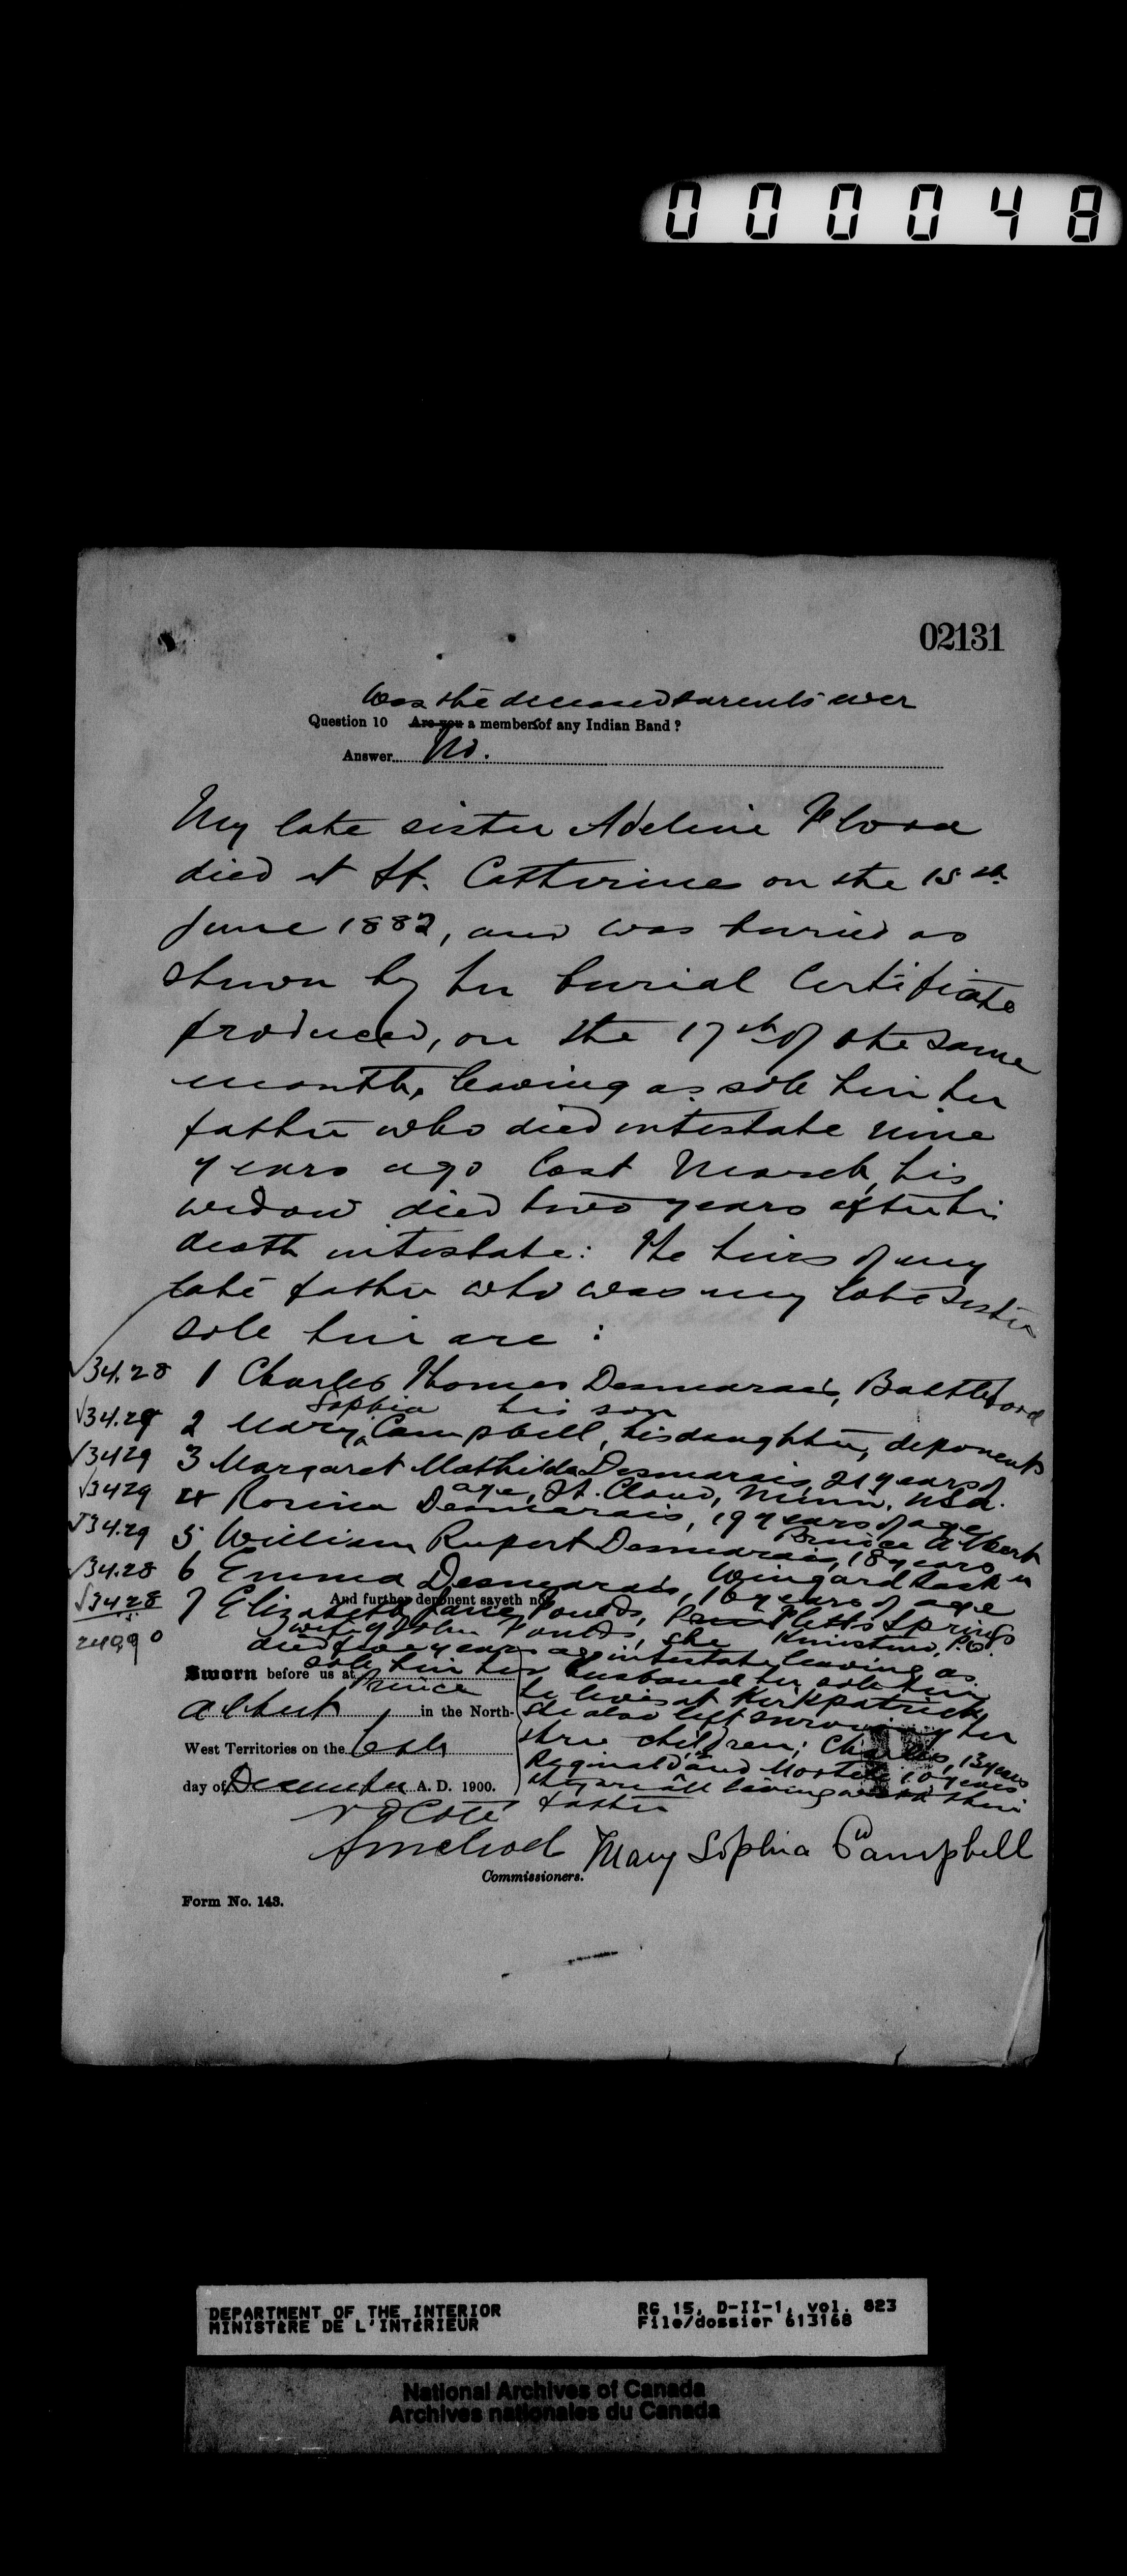 000048
02131
Was the deceased parents ever
Question 10 Are you a members of any Indian Band?
Answer No.
My late sister Adeline Flora
died at St. Catherines on the 15th
June 1882, and was buried as
shown by her burial Certificate
produced, on the 17th of the same
month, leaving as sole heir her
father who died intestate nine
years ago last March, his
widow died two years after his
death intestate: The heirs of my
late father who was my late sister
sole heir are:
√34.28 1 Charles Thomas Desmarais, Battleford
his son
√34.29 2 Mary Sophia Campbell, his daughter, deponent
√3429 3 Margaret Mathilda Desmarais, 21 years of
age, St. Cloud, Minn. USA.
√3429 4 Rosina Desmarais, 19 years of age
Prince Albert
√34.29 5 William Rupert Desmarais, 18 years
√34.28 6 Emma Desmarais, 16 years of age
Wingard Sask
√3428 7 Elizabeth Jane Foulds, Fletts Springs
240,00
And further deponent sayeth not.
wife of John Foulds, she Kinistino, P.O.
died five years ago intestate leaving as
sole heir her husband her sole heir
he lives at Kirkpatrick
she also left surviving her
three children; Charles, 13 years
Reginald and 10 years
they are all living with their
father
Sworn before us at Prince
Albert in the North-
West Territories on the 6th
day of December A. D. 1900.
N O Coté
Commissioners.
Mary Sophia Campbell
Form No. 143.
DEPARTMENT OF THE INTERIOR
MINISTÈRE DE L'INTÉRIEUR
RG 15, D-II-1, vol. 823
File/dossier 613168
National Archives of Canada
Archives nationales du Canada